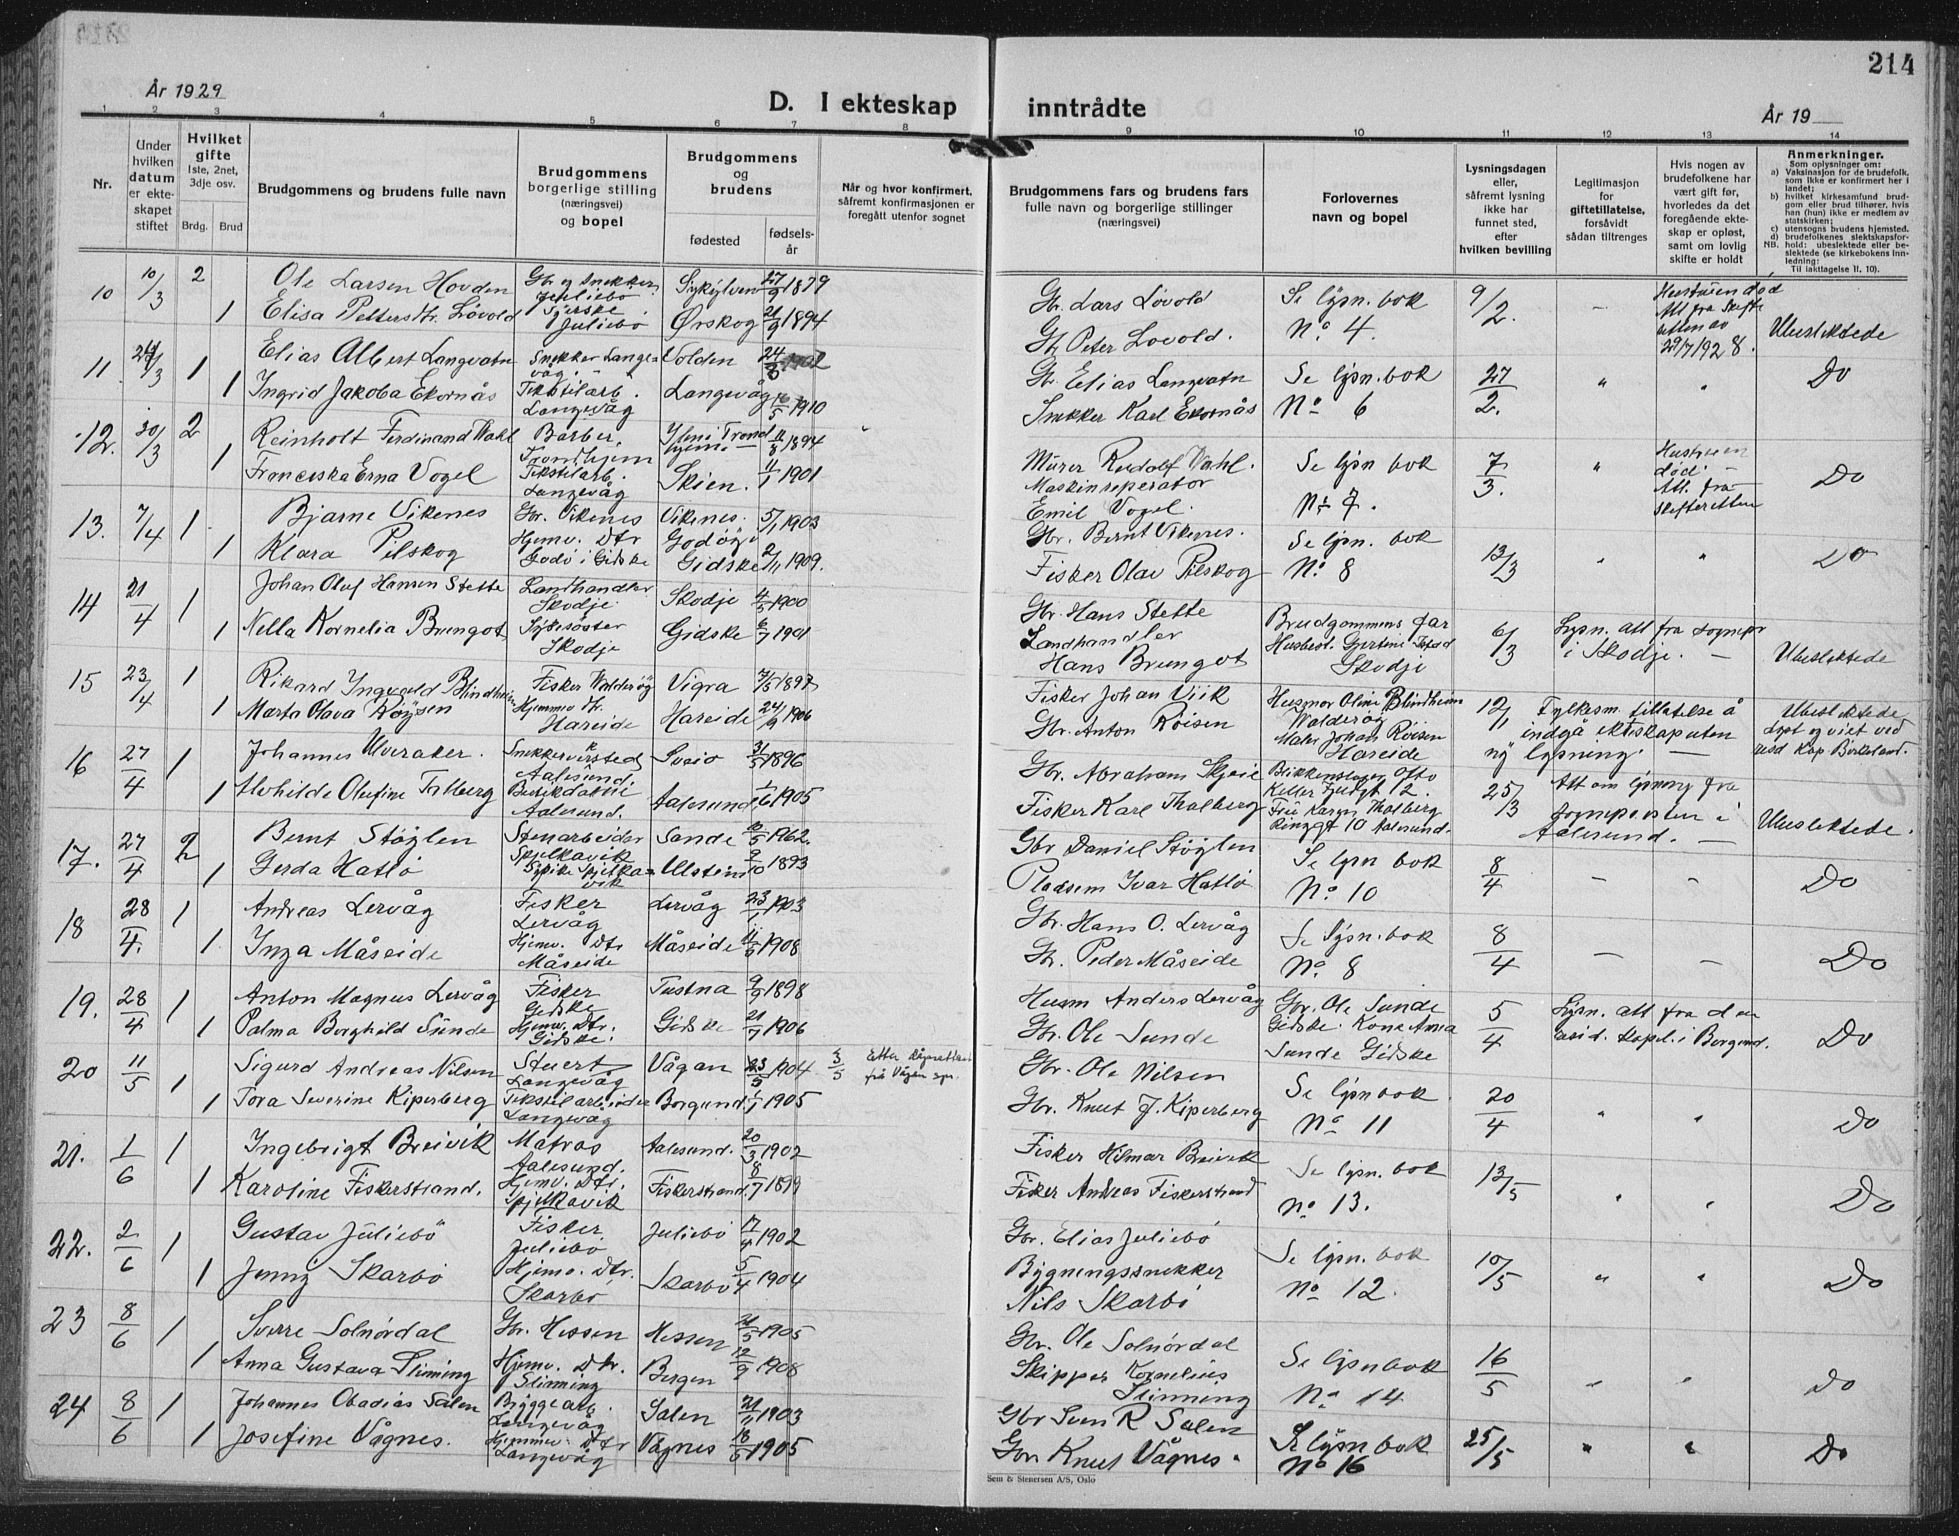 214
År 1929
D. I ekteskap
inntrådte
År 19
1 2 3 4 5 6 7 8 9 10 11 12 13 14
Nr.
Under hvilken datum er ekteskapet stiftet
Hvilket gifte
1ste, 2net, 3dje osv.
Brdg. Brud
Brudgommens og brudens fulle navn
Brudgommens borgerlige stilling (næringsvei) og bopel
Brudgommens og brudens
fødested
fødselsår
Når og hvor konfirmert, såfremt konfirmasjonen er foregått utenfor sognet
Brudgommens fars og brudens fars fulle navn og borgerlige stillinger (næringsvei)
Forlovernes navn og bopel
Lysningsdagen eller, såfremt lysning ikke har funnet sted, efter hvilken bevilling
Legitimasjon for giftetillatelse, forsåvidt sådan tiltrenges
Hvis nogen av brudefolkene har vært gift før, hvorledes da det foregående ekteskap er opløst, samt om lovlig skifte er holdt
Anmerkninger.
Som oplysninger om:
a) Vaksinasjon for de brudefolk, som ikke er konfirmert her i landet;
b) hvilket kirkesamfund brudgom eller brud tilhører, hvis han (hun) ikke er medlem av statskirken;
c) utensogns brudens hjemsted.
d) brudefolkenes slektskapsforhold: ubeslektede eller beslektede (se kirkebokens innledning:
NB.
Til iakttagelse 11. 10).
10 10/3 2 Ole Larsen Hovden Gbr og Snekker Juliebø Sykylven 27/9 1879 Gbr. Lars Løvold Se lysn. bok 9/2. - Hustruen død
1 Elisa Petters dtr. Løvold Syerske Juliebø Ørskog 21/9 1894 Gb Peter Lovold. No 4. Att fra Skifteretten av 29/7 1928. Ubeslektede
11. /3 1 Elias Albert Langvatn Snekker Langevåg. Volden 24/ 1902 Gbr Elias Langvatn Se lysn. bok 27/2. " " Do
1 Ingrid Jakoba Ekornås Tekstilarb. Langevåg Langevåg /5 1910 Snekker Karl Ekornås No 6
12. 30/3 2 Reinholt Ferdinand Wahl Barber, Trondhjem Ilen i Trondhjem. 11/8 1894 Murer Rudolf Wahl. Se lysn bok 7/3. " Hustruen død.
1 Franciska Erna Vogel Tekstilarb. Langevåg Skien. 11/1 1901 Maskinreperatør Emil Vogel. No 7. Att. fra skifteretten Do
13. 7/4 1 Bjarne Vikenes Gbr. Vikenes Vikenes. 5/1 1903 Gbr. Bernt Vikenes. Se lysn. bok 13/3 " " Do
1 Klara Pilskog Hjemv. Dtr Godø i Gidske Godøy i Gidske 2/11 1909. Fisker Olav Pilskog No. 8
14 21/4 1 Johan Oluf Hansen Stette Landhandler Skodje Skodje 4/5 1900 Gbr. Hans Stette Brudgommens far 6/3 Lysn. att fra sognepr
1 Nella Kornelia Brungot Sykesøster Skodje Gidske 6/7 1901 Landhandler Hans Brungot Husbest. Skodje i Skodje. - Ubeslektede
15 23/4 1 Rikard Ingvald Blindheim Fisker Walderøy Vigra 7/5 1897 Fisker Johan Viik Husmor Oline Blindheim Walderøy 12/1 Fylkesm. tillatelse å Ubeslektede
1 Marta Olava Røysen Hjemmev dtr. Hareide Hareide 24/9 1906 Gbr. Anton Röisen Maler Johan Röisen Hareide indgå ektskap uten ny lysning. - Lyst og viet ved resd Kap Birkeland.
16 27/4 1 Johannes Utveraker. Snekkerverksted Aalesund. Sveio 31/5 1896 Gbr. Abraham Skjeie Blikkenslager Otto Keller 25/3 Att om lysning fra
1 Alvhilde Olufine Talberg Butikdame Aalesund. Aalesund 1/6 1905 Fisker Karl Thalberg Fru Karen Thalberg Ringgt 10 Aalesund. sognepresten i Aalesund. - Ubeslektede.
17. 27/4 2 Bernt Støylen Stenarbeider Spjelkavik Sande 10/5 1962. Gbr Daniel Støylen Se lysn bok 8/4 - - Do
1 Gerda Hatlø Spjelkavik Ulstein 2/10 1893 Pladsem Ivar Hatlø No. 10
18 28/4. 1 Andreas Lervåg Fisker Lervåg Lervåg 23/1 1903 Gbr. Hans O. Lervåg Se Lysn. bok 8/4 - - Do
1 Inga Måseide Hjemv. Dtr Måseide Måseide 11/6 1908 Gb. Peder Måseide No. 8
19. 28/4 1 Anton Magnus Lervåg Fisker Gidske Tustna 9/9 1898 Husm Anders Lervåg Gbr. Ole Sunde Gidske. Kone Anna 5/4 Lysn. att fra den
1 Palma Borghild Sunde Hjemv. Dtr. Gidske. Gidske 21/7 1906 Gbr. Ole Sunde Sunde Gidske resid. Kapel. i Borgund. Do
20 11/5 1 Sigurd Andreas Nilsen Stuert Langevåg Vågan 23/5 1904 3/5 Etter dåpsattest frå Vågan spr. Gbr. Ole Nilsen Se lysn bok 20/4 " " Do
1 Tora Severine Kiperberg Tekstilarbeider Langevåg Borgund 1/1 1905 Gbr. Knut J. Kiperberg No 11
21. 1/6 1 Ingebrigt Breivik Matros Aalesund. Aalesund. 20/3 1902 Fisker Hilmar Breivik Se lysn. bok 13/5 " " Do
1 Karoline Fiskerstrand. Hjemv. Dtr. Spjelkavik Fiskerstrand 8/7 1899 Fisker Andreas Fiskerstrand No 13.
22. 2/6 1 Gustav Juliebø Fisker Juliebø Juliebø 17/4 1902 Gbr. Elias Juliebø Se lysn. bok 10/5 " " Do
1 Jenny Skarbø Hjemv. Dtr. Skarbø Skarbø 5/4 1904 Bygningssnekker Nils Skarbø No 12.
23 8/6 1 Sverre Solnørdal Gbr. Hessen Hessen 21/5 1905 Gbr. Ole Solnørdal Se lysn bok 16/5 " " Do
1 Anna Gustava Slinning Hjemv. Dtr. Slinning Bergen 12/9 1908 Skipper Kornelius Slinning No 14.
24 8/6 1 Johannes Obadias Salen Byggearb. Langevåg Salen 21/11 1903 Gbr Sven R Salen Se lysn bok 25/5 " " Do
1 Josefine Vågnes. Hjemmev. Dtr Langevåg Vågnes 18/6 1905 Gbr Knut Vågnes. No 16
Sem & Stenersen A/S, Oslo